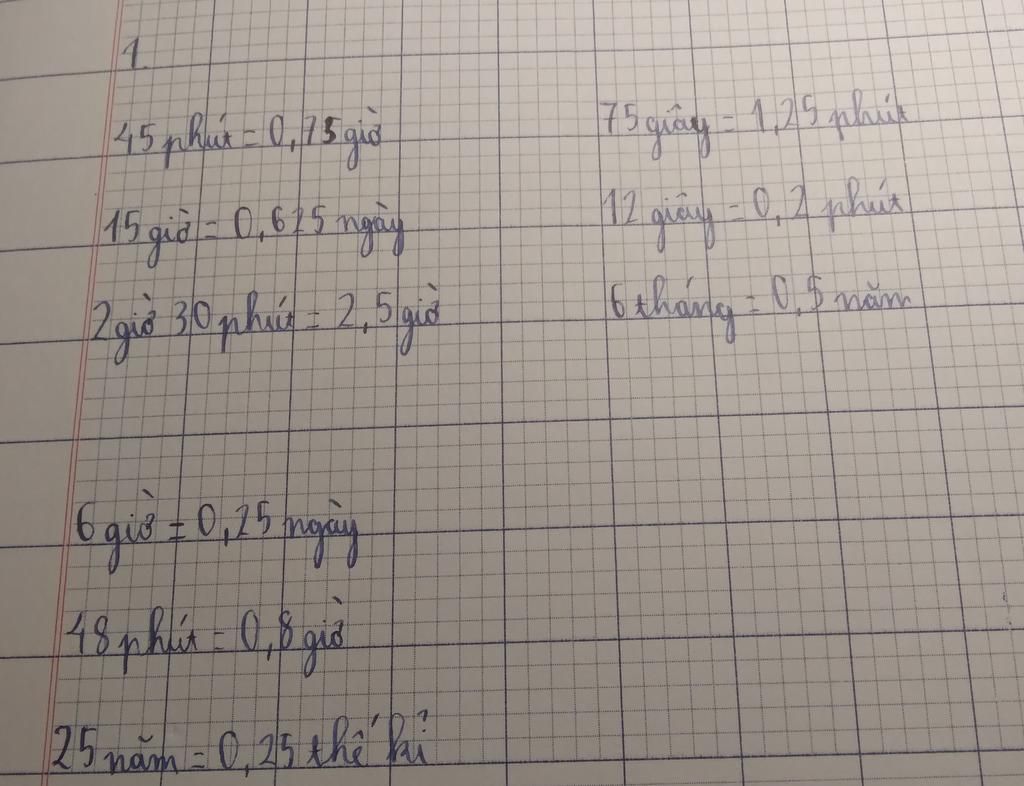 1
45 phút = 0,75 giờ
15 giờ = 0,625 ngày
2 giờ 30 phút = 2,5 giờ
75 giây = 1,25 phút
12 giây = 0,2 phút
6 tháng = 0,5 năm
6 giờ = 0,25 ngày
48 phút = 0,8 giờ
25 năm = 0,25 thế kỉ